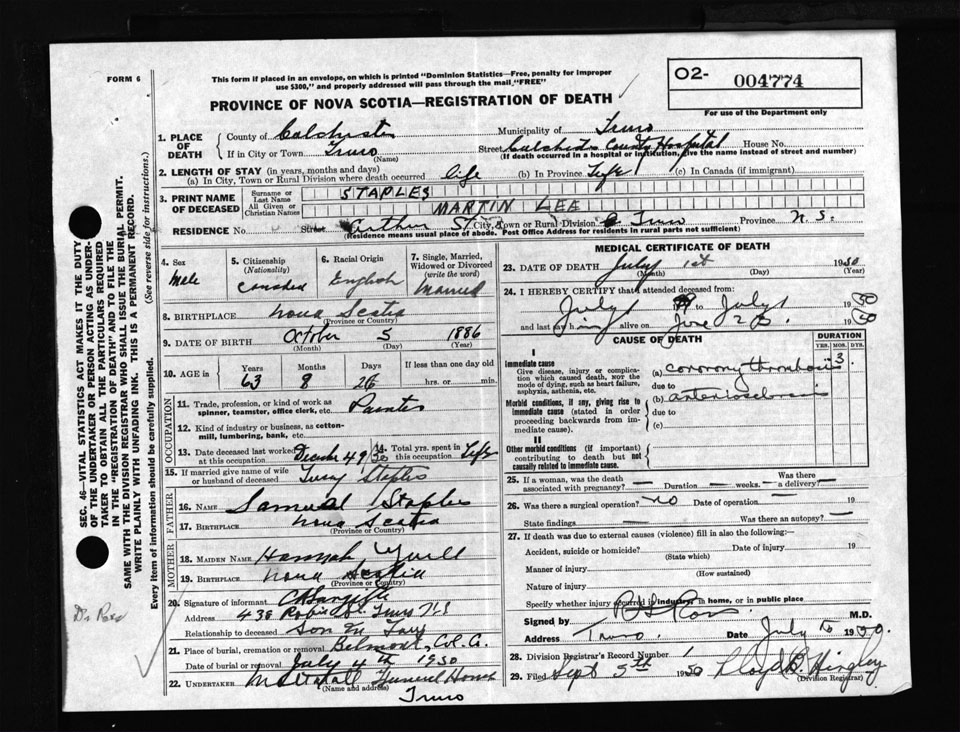 FORM 6
This form if placed in an envelope, on which is printed "Dominion Statistics—Free, penalty for improper
use $300," and properly addressed will pass through the mail "FREE"
PROVINCE OF NOVA SCOTIA—REGISTRATION OF DEATH
O2- 004774
For use of the Department only
1. PLACE OF DEATH
County of Colchester Municipality of Truro
If in City or Town Truro Street Colchester County Hospital House No.
(Name) (If death occurred in a hospital or institution, give the name instead of street and number)
2. LENGTH OF STAY (in years, months and days)
(a) In City, Town or Rural Division where death occurred life (b) In Province Life (c) In Canada (if immigrant)
3. PRINT NAME OF DECEASED
Surname or Last Name STAPLES
All Given or Christian Names MARTIN LEE
RESIDENCE No. Street Arthur St City, Town or Rural Division Truro Province N.S.
(Residence means usual place of abode. Post Office Address for residents in rural parts not sufficient)
4. Sex
Male
5. Citizenship (Nationality)
6. Racial Origin
English
7. Single, Married, Widowed or Divorced (write the word)
Married
8. BIRTHPLACE Nova Scotia
(Province or Country)
9. DATE OF BIRTH October 5 1886
(Month) (Day) (Year)
10. AGE in
Years Months Days If less than one day old
63 8 26 hrs. or min.
OCCUPATION
11. Trade, profession, or kind of work as spinner, teamster, office clerk, etc. Painter
12. Kind of industry or business, as cotton-mill, lumbering, bank, etc.
13. Date deceased last worked at this occupation December 49
14. Total yrs. spent in this occupation Life
15. If married give name of wife or husband of deceased Staples
FATHER
16. NAME Samuel Staples
17. BIRTHPLACE Nova Scotia
(Province or Country)
MOTHER
18. MAIDEN NAME Hannah Yuill
19. BIRTHPLACE Nova Scotia
(Province or Country)
20. Signature of informant
Address 438 Robie St. Truro N.S.
Relationship to deceased Son In Law
21. Place of burial, cremation or removal Belmont, Col. Co.
Date of burial or removal July 4th 1950
22. UNDERTAKER Funeral Home
(Name and address)
Truro
MEDICAL CERTIFICATE OF DEATH
23. DATE OF DEATH July 1st 1950
(Month) (Day) (Year)
24. I HEREBY CERTIFY that I attended deceased from:
July 1 19 to July 1 1950
and last saw him alive on June 1950
CAUSE OF DEATH
DURATION
YRS. MOS. DYS.
I
Immediate cause
Give disease, injury or complication which caused death, NOT the mode of dying, such as heart failure, asphyxia, asthenia, etc.
(a) coronary thrombosis 3
due to
Morbid conditions, if any, giving rise to immediate cause (stated in order proceeding backwards from immediate cause).
(b) arteriosclerosis
due to
(c)
II
Other morbid conditions (if important) contributing to death but not causally related to immediate cause.
25. If a woman, was the death associated with pregnancy? — Duration — weeks. Was there a delivery? —
26. Was there a surgical operation? no Date of operation —
State findings — Was there an autopsy? —
27. If death was due to external causes (violence) fill in also the following:
Accident, suicide or homicide? Date of injury 19
(State which)
Manner of injury
(How sustained)
Nature of injury
Specify whether injury occurred in industry, in home, or in public place
Signed by Ross M.D.
Address Truro Date July 1950.
28. Division Registrar's Record Number 1
29. Filed Sept 5th 1950 Lloyd B. Hingley
(Division Registrar)
SEC. 46—VITAL STATISTICS ACT MAKES IT THE DUTY
OF THE UNDERTAKER OR PERSON ACTING AS UNDER-
TAKER TO OBTAIN ALL THE PARTICULARS REQUIRED
IN THE "REGISTRATION OF DEATH" AND TO FILE THE
SAME WITH THE DIVISION REGISTRAR WHO SHALL ISSUE THE BURIAL PERMIT.
WRITE PLAINLY WITH UNFADING INK. THIS IS A PERMANENT RECORD.
Every item of information should be carefully supplied. (See reverse side for instructions.)
Dr Ross